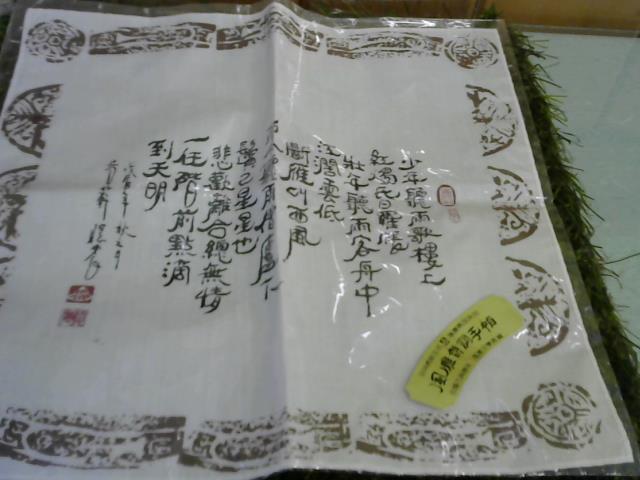 少年聽雨歌樓上
紅燭昏羅帳
壯年聽雨客舟中
江闊雲低
斷雁叫西風
聽雨僧廬下
鬢已星星也
悲歡離合總無情
一任階前點滴
到天明
手帕